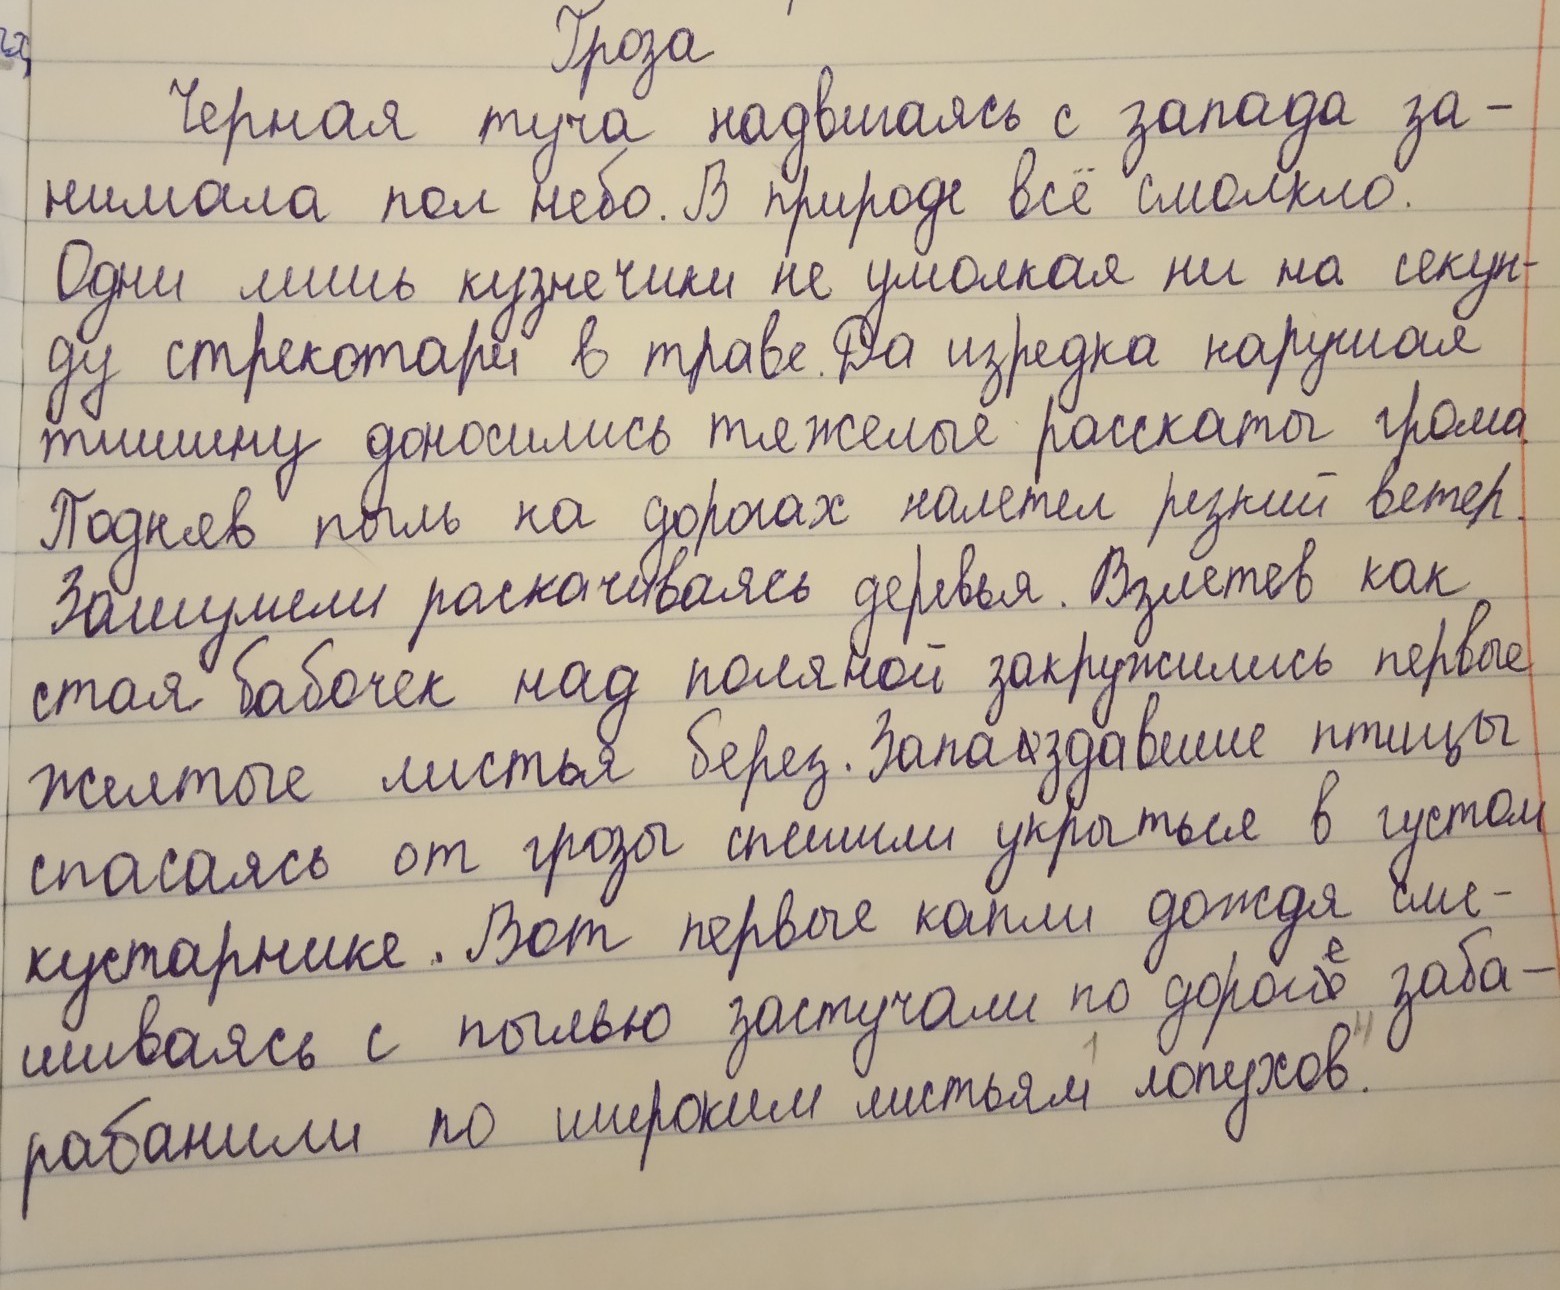 Гроза
Черная туча надвигаясь с запада за-
нимала пол небо. В природе всё смолкло.
Одни лишь кузнечики не умолкая ни на секун-
ду стрекотари в траве. Да изредка нарушая
тишину доносились тяжелые расскаты грома.
Подняв пыль на дорогах налетел резкий ветер.
Зашумели раскачиваясь деревья. Взлетев как
стая бабочек над поляной закружились первые
желтые листья берез. Запаздавшие птицы
спасаясь от грозы спешили укрыться в густом
кустарнике. Вот первые капли дождя сме-
шиваясь с пылью застучали по дороге заба-
рабанили по широким листьям лопухов.